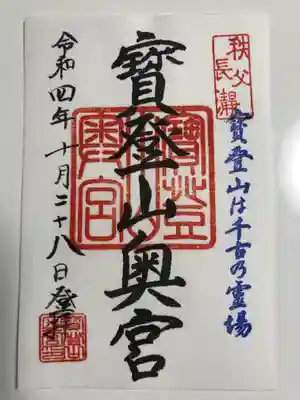 秩父
長瀞
寶登山は千古乃霊場
寶登山奥宮
寶登山
奥宮
令和四年十月二十八日登拝